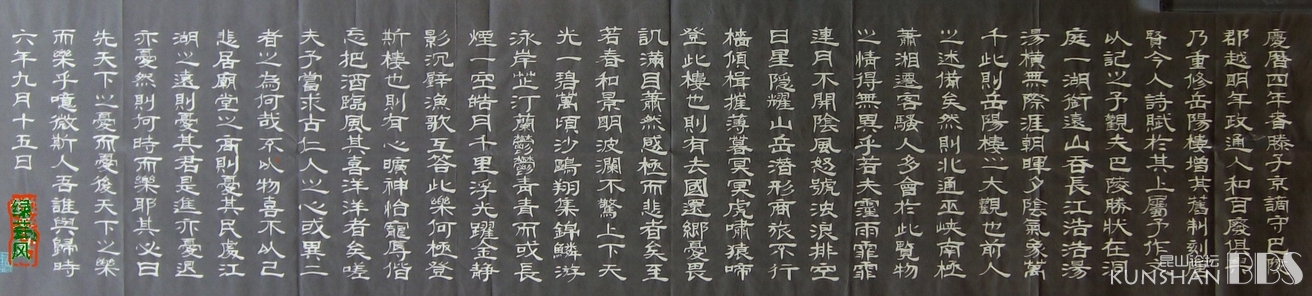 慶曆四年春滕子京謫守巴陵
郡越明年政通人和百廢俱興
乃重修岳陽樓增其舊制刻唐
賢今人詩賦於其上屬予作文
以記之予觀夫巴陵勝狀在洞
庭一湖銜遠山吞長江浩浩湯
湯橫無際涯朝暉夕陰氣象萬
千此則岳陽樓之大觀也前人
之述備矣然則北通巫峽南極
蕭湘遷客騷人多會於此覽物
之情得無異乎若夫霪雨霏霏
連月不開陰風怒號濁浪排空
日星隱耀山岳潛形商旅不行
檣傾楫摧薄暮冥冥虎嘯猿啼
登此樓也則有去國還鄉憂畏
譏滿目蕭然感極而悲者矣至
若春和景明波瀾不驚上下天
光一碧萬頃沙鷗翔集錦鱗游
泳岸芷汀蘭鬱鬱青青而或長
煙一空皓月千里浮光躍金靜
影沉璧漁歌互答此樂何極登
斯樓也則有心曠神怡寵辱偕
忘把酒臨風其喜洋洋者矣嗟
夫予嘗求古仁人之心或異二
者之為何哉不以物喜不以己
悲居廟堂之高則憂其民處江
湖之遠則憂其君是進亦憂退
亦憂然則何時而樂耶其必曰
先天下之憂而憂後天下之樂
而樂乎噫微斯人吾誰與歸時
六年九月十五日
昆山论坛
KUNSHAN BBS